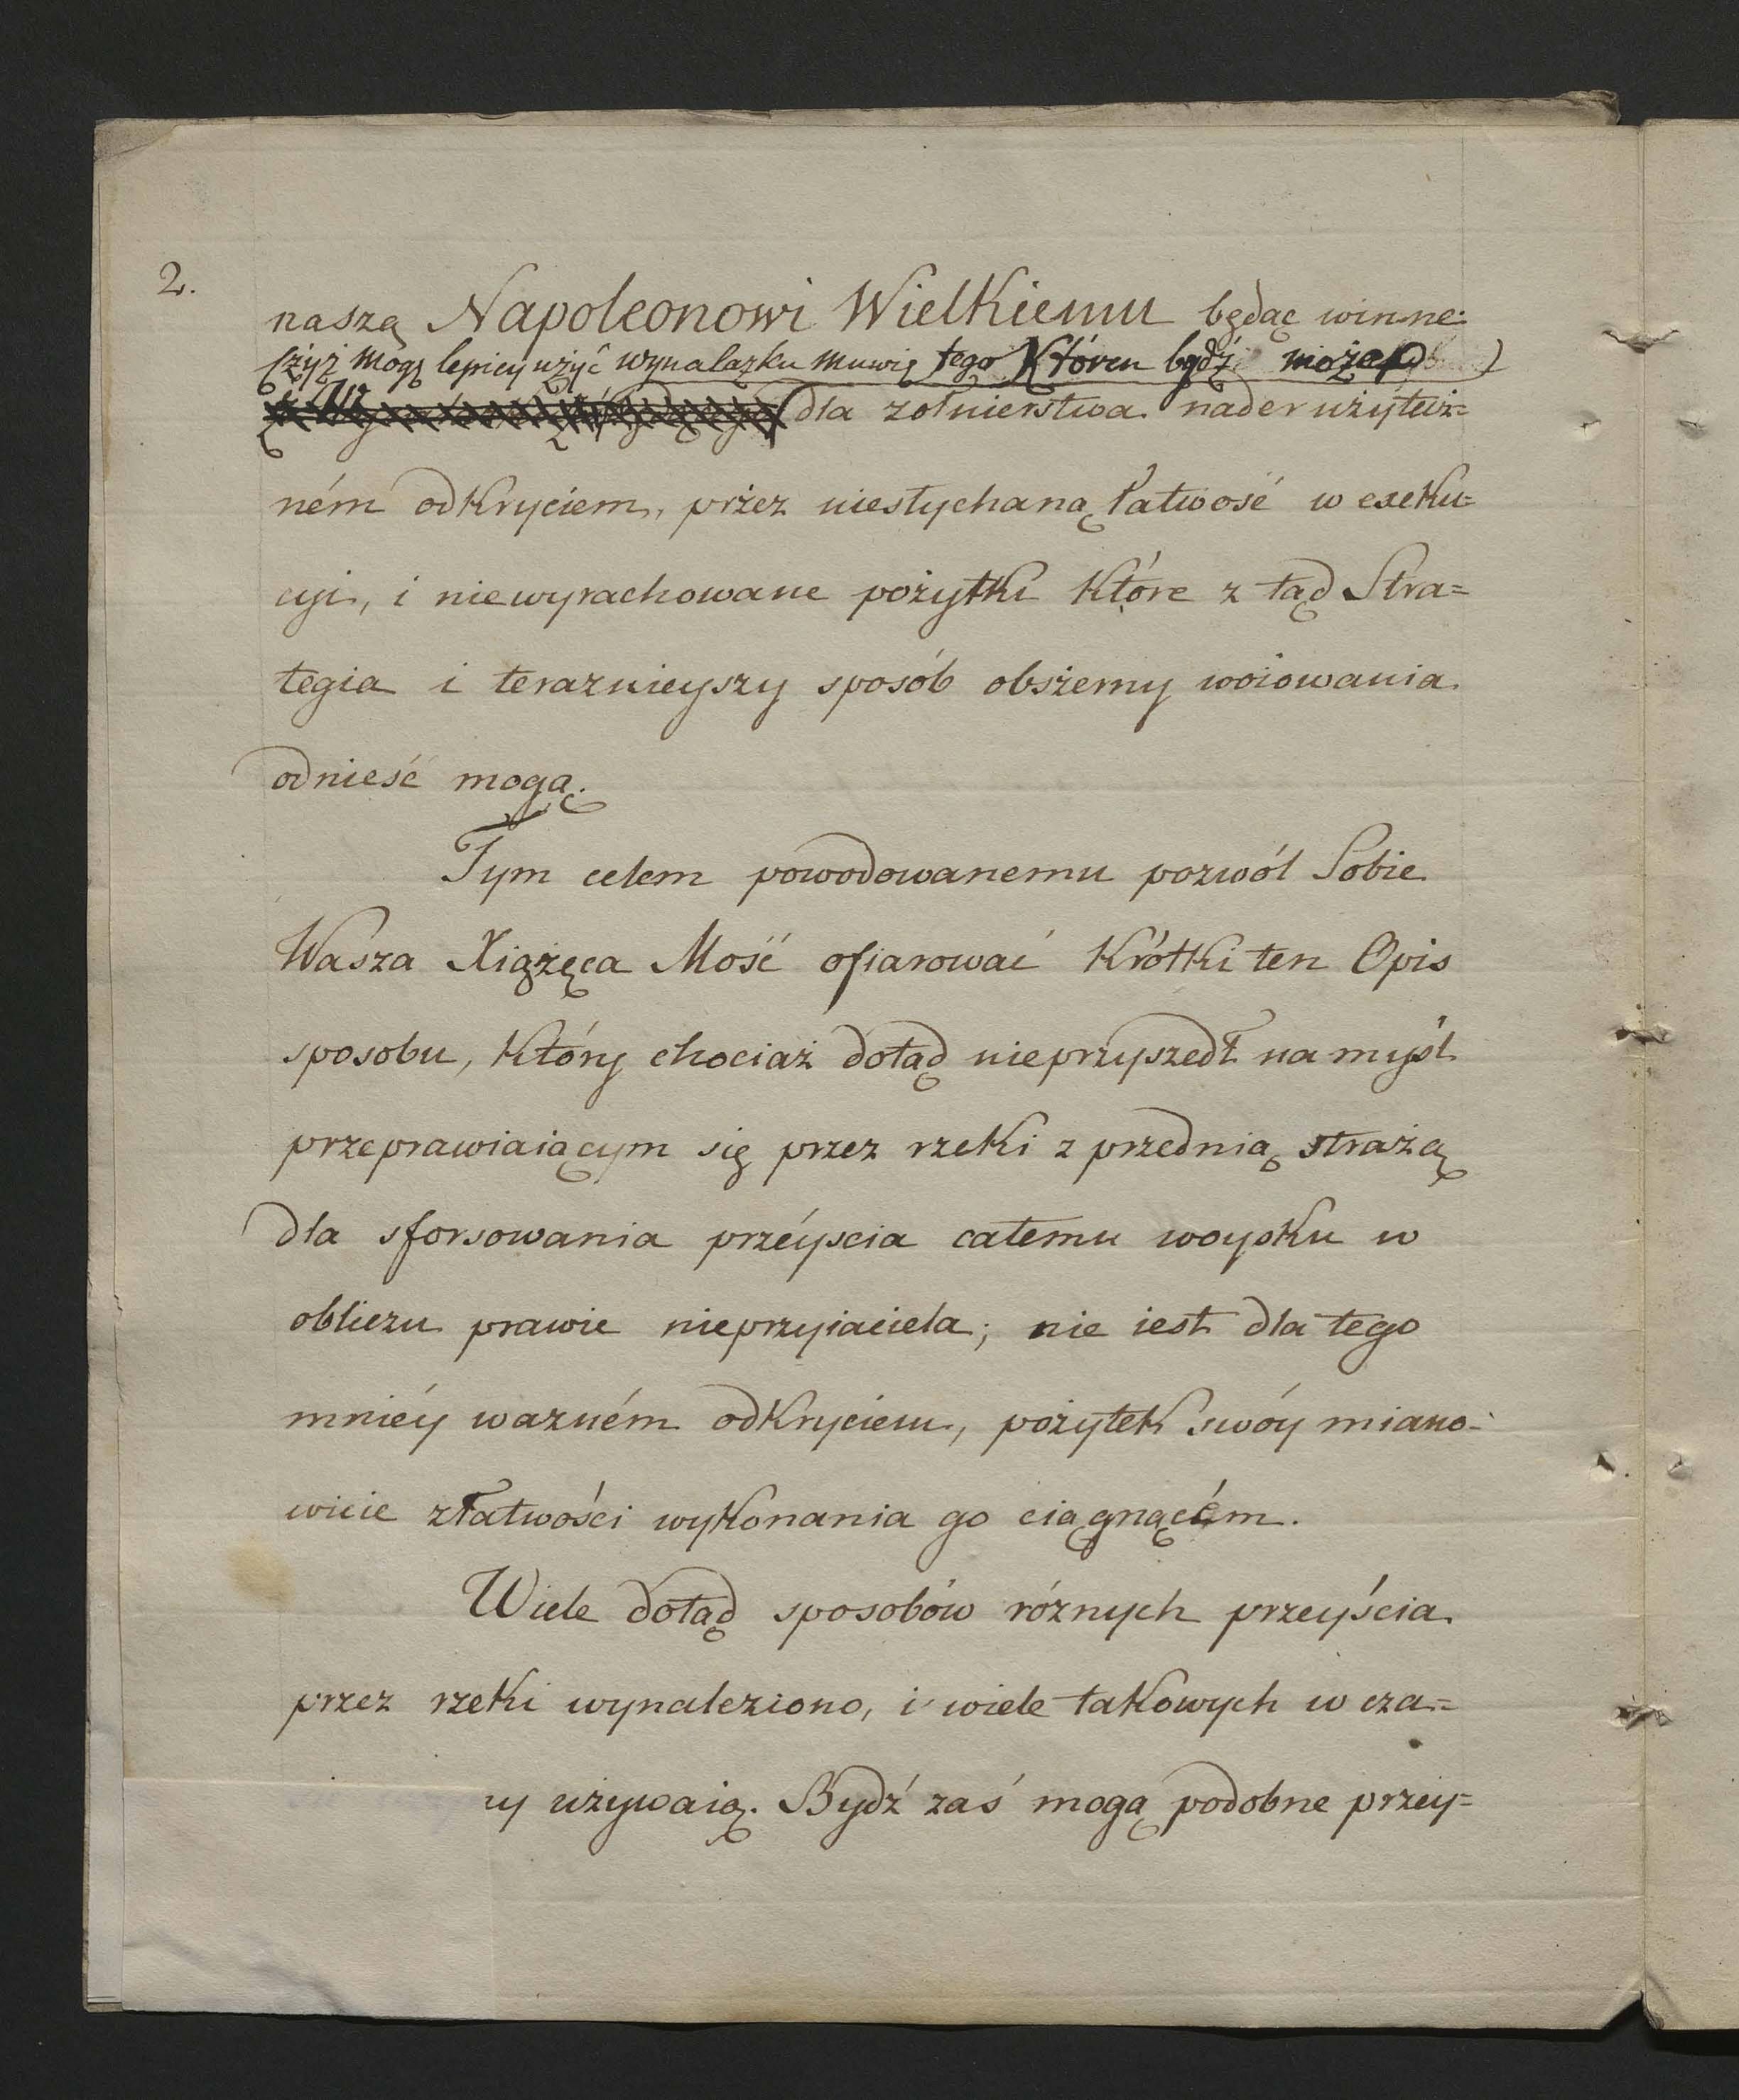 2.
naszą Napoleonowi Wielkiemu będąc winne.
czyż mogę lepiey użyć wynalazku muwię tego Któren bydź może
dla zołnierstwa nader użytecz=
ném odkryciem, przez niesłychaną łatwość w exeku=
cyi, i niewyrachowane pożytki które z tąd Stra=
tegia i teraznieyszy sposób obszerny woiowania
odnieść mogą.
Tym celem powodowanemu pozwól Sobie
Wasza Xiążęca Mość ofiarować Krótki ten Opis
sposobu, Który chociaż dotąd nieprzyszedł na myśl
przeprawiaiącym się przez rzeki z przednią strażą
dla sforsowania przéyscia całemu woysku w
obliczu prawie nieprzyiaciela; nie iest dla tego
mniéy ważném odkryciem, pożytek swóy miano-
wicie z łatwości wykonania go ciągnącém.
Wiele dotąd sposobów róznych przeyścia
przez rzeki wynaleziono, i wiele takowych w cza=
ny używaią. Bydź zaś mogą podobne przey=